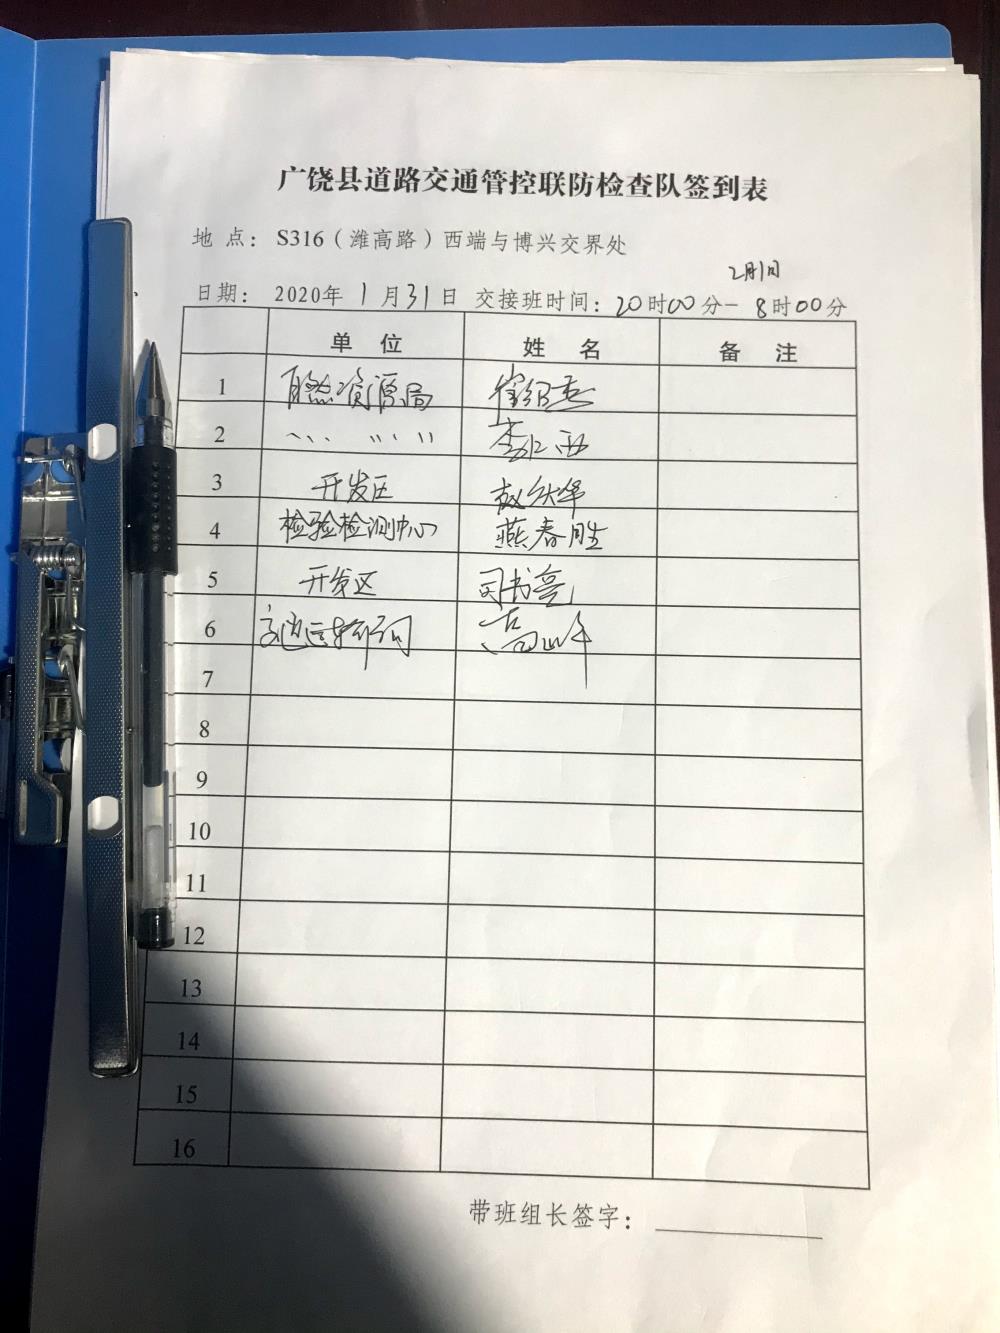 广饶县道路交通管控联防检查队签到表
地 点： S316（潍高路）西端与博兴交界处
2月1日
日期： 2020年 1 月 31 日 交接班时间：20时00分－ 8时00分
单 位 姓 名 备 注
1 自然资源局 崔绍杰
2 、、、 、、、、 李
3 开发区 赵
4 检验检测中心 燕春胜
5 开发区 司书亮
6 高峰
7
8
9
10
11
12
13
14
15
16
带班组长签字：